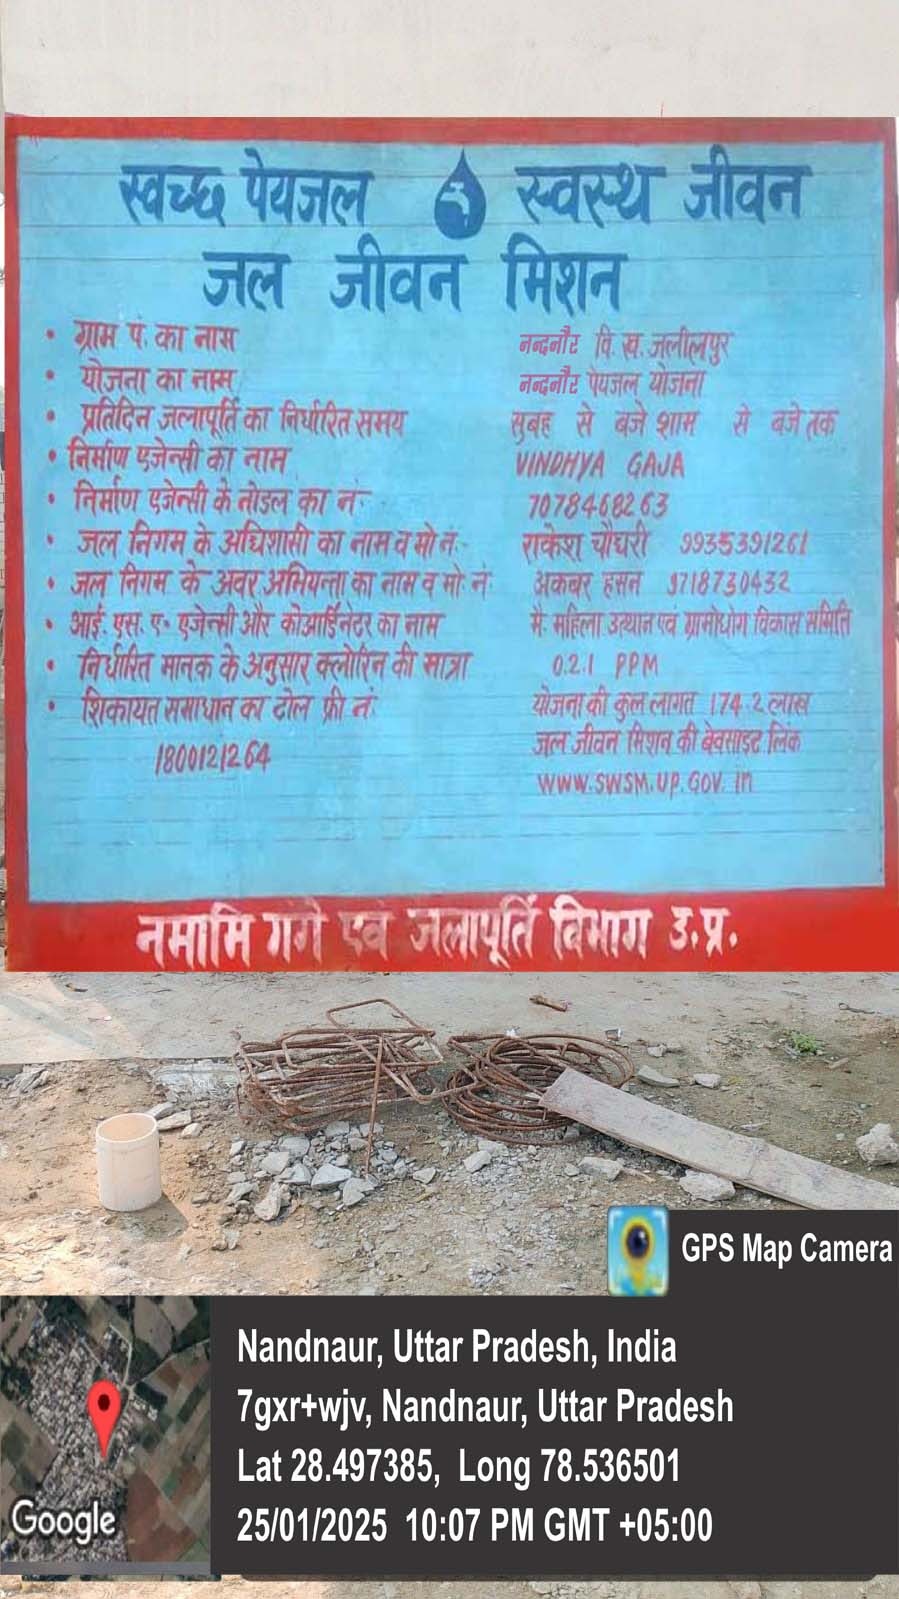 स्वच्छ पेयजल स्वस्थ जीवन
जल जीवन मिशन
• ग्राम पं. का नाम नन्दनौर वि. ख. जलीलपुर
• योजना का नाम नन्दनौर पेयजल योजना
• प्रतिदिन जलापूर्ति का निर्धारित समय सुबह से बजे शाम से बजे तक
• निर्माण एजेन्सी का नाम VINDHYA GAJA
• निर्माण एजेन्सी के नोडल का नं. 7078468263
• जल निगम के अधिशासी का नाम व मो नं. राकेश चौधरी 9935391261
• जल निगम के अवर अभियन्ता का नाम व मो. नं. अकबर हसन 9718730432
• आई. एस. ए. एजेन्सी और कोआर्डिनेटर का नाम मै. महिला उत्थान एवं ग्रामोधोग विकास समिति
• निर्धारित मानक के अनुसार क्लोरिन की मात्रा 0.2.1 PPM
• शिकायत समाधान का टोल फ्री नं. योजना की कुल लागत 174.2 लाख
1800121264 जल जीवन मिशन की बेवसाइट लिंक
www.swsm.up.gov.in
नमामि गंगे एवं जलापूर्ति विभाग उ.प्र.
GPS Map Camera
Nandnaur, Uttar Pradesh, India
7gxr+wjv, Nandnaur, Uttar Pradesh
Lat 28.497385, Long 78.536501
25/01/2025 10:07 PM GMT +05:00
Google